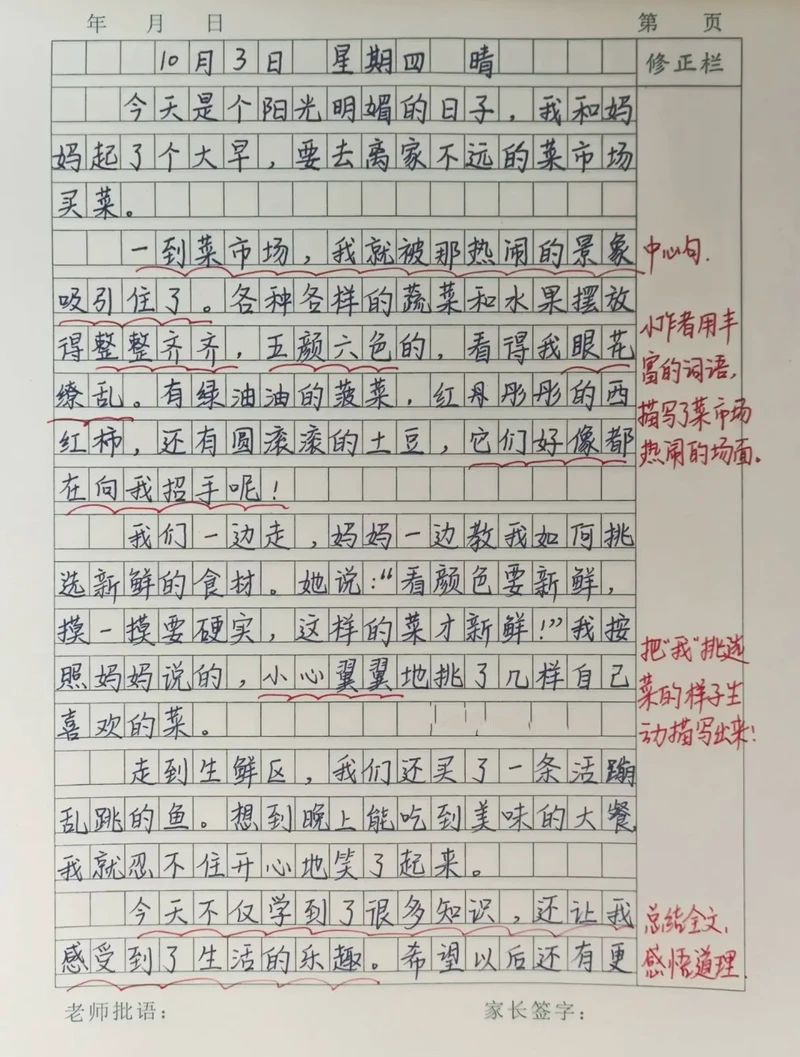 年 月 日 第 页
10月3日 星期四 晴 修正栏
今天是个阳光明媚的日子，我和妈
妈起了个大早，要去离家不远的菜市场
买菜。
一到菜市场，我就被那热闹的景象
中心句.
吸引住了。各种各样的蔬菜和水果摆放
得整整齐齐，五颜六色的，看得我眼花
缭乱。有绿油油的菠菜，红丹彤彤的西
红柿，还有圆滚滚的土豆，它们好像都
在向我招手呢！
小作者用丰
富的词语，
描写了菜市场
热闹的场面。
我们一边走，妈妈一边教我如何挑
选新鲜的食材。她说：“看颜色要新鲜，
摸一摸要硬实，这样的菜才新鲜！”我按
照妈妈说的，小心翼翼地挑了几样自己
喜欢的菜。
把“我”挑选
菜的样子生
动描写出来！
走到生鲜区，我们还买了一条活蹦
乱跳的鱼。想到晚上能吃到美味的大餐
我就忍不住开心地笑了起来。
今天不仅学到了很多知识，还让我
感受到了生活的乐趣。希望以后还有更
总结全文，
感悟道理.
老师批语： 家长签字：